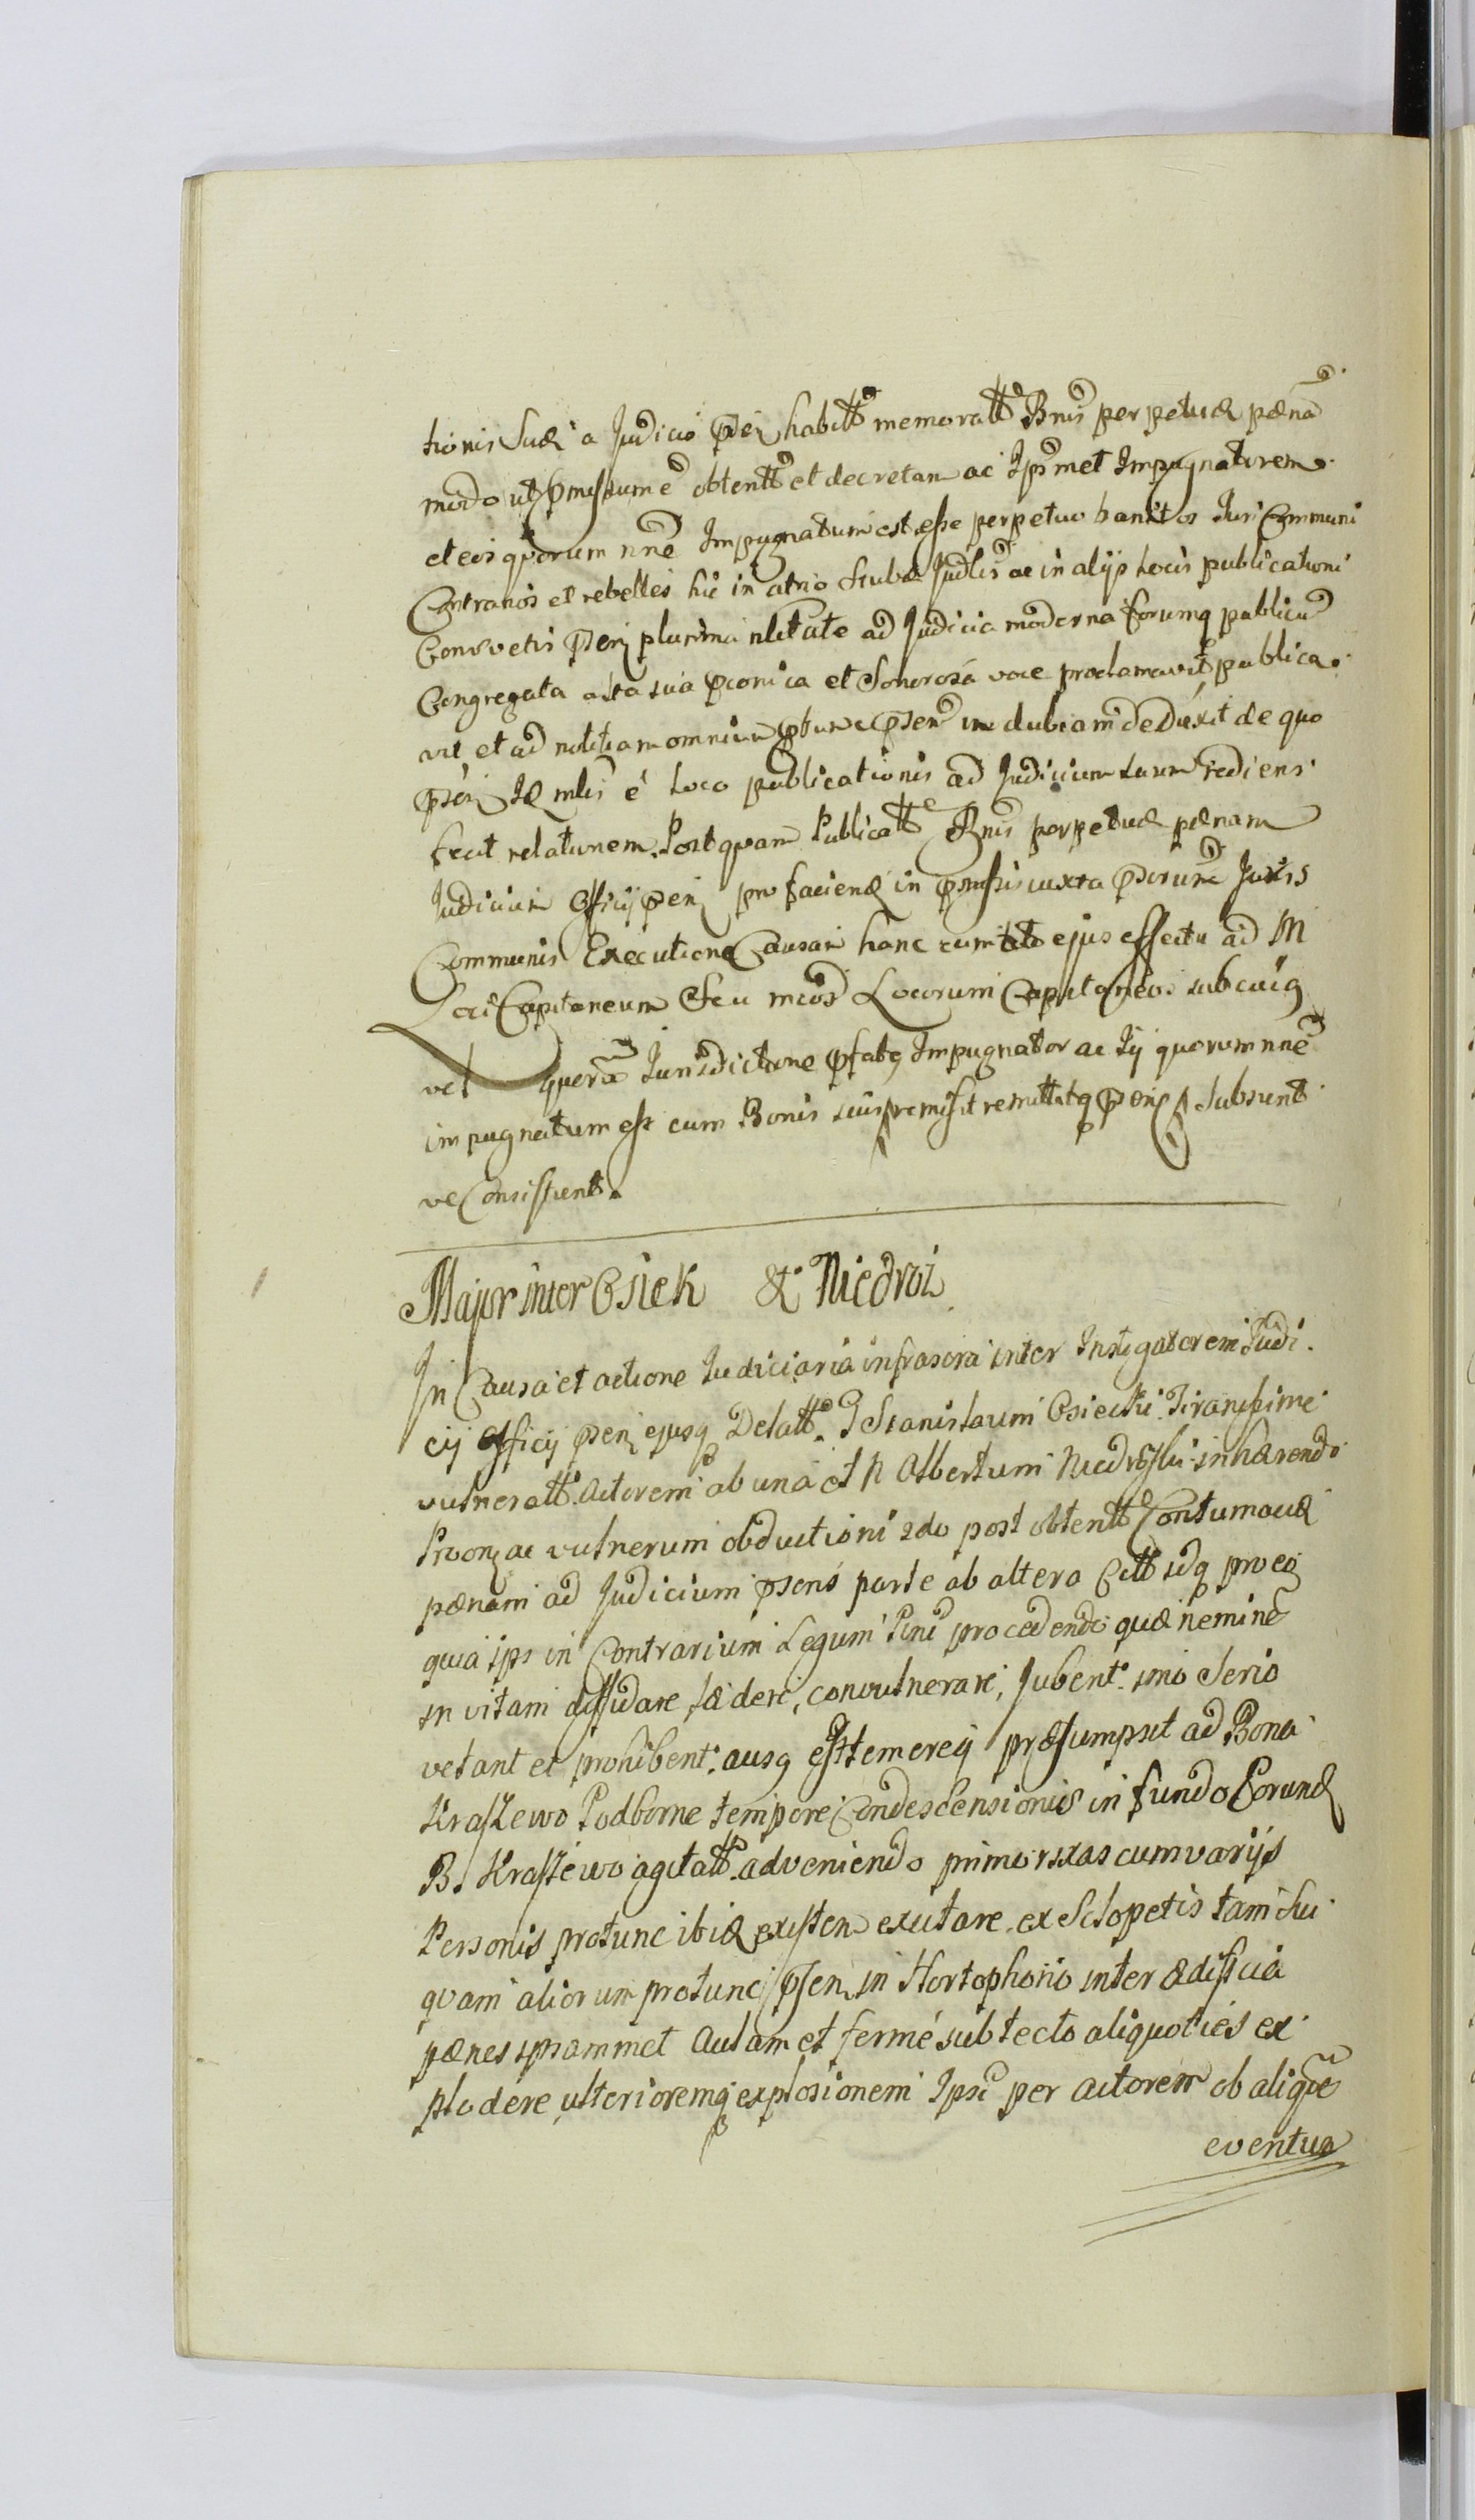 tionis Suæ a Judicio pñtj habitt memoratt Bnis perpetuæ pænã
modo ut pmissum ẽ obtentt et decretam ac Ipsmet Impugnatorem
et eos quorum nñe Impugnatum est esse perpetuo banitos Juri Communi
Contrarios et rebelles hic in atrio Stubæ Judlis ac in alijs Locis publicationi
Consvetis psenj plurima nlitate ad Judicia moderna forumq publicũ
Congregata alta sua pconica et Sonorosa voce proclamavit publica
vit et ad notitiam omnium ptunc psen indubiam deduxit de quo
psenj Læ mlis é Loco publicationis ad Judicium suum rediens
fecit relationem. Postquam Publicatt Bnis perpetuæ pænam
Judicium Officij psenj pro faciend in pmissis juxta pscrum Juris
Communis Executione Causam hanc cum toto ejus effectu ad M
Loci Capitaneum Seu meos Locorum Capitaneos sub cuiq
vel quorũ Jurisdictione pfatq Impugnator ac Ij quorum nñe
impugnatum est cum Bonis suis remisit remittitq psenj Subsunt
ve Consistunt.
Major inter Osiek & Niedroz
In Causa et actione Judiciaria infrascra inter Instigatorem Judi
cij Officij psenj ejusq Delatt. G Stanislaum Osiecki Tiranissime
vulneratt. Actorem ab una et N Albertum Niedroski inhærendo
Proonj ac vulnerum obductioni 2do post obtentt Contumaciæ
pænam ad Judicium psens parte ab altera Citt idq pro eo
quia ips in Contrarium Legum Pni procedendo quæ neminẽ
in vitam diffidare, lædere, convulnerare, Jubent. imo Serio
vetant et prohibent. ausq est temereq præsumpsit ad Bona
Kraszewo Podborne tempore Condescensionis in fundo Eorund
B. Kraszewo agitatt. adveniendo primo rixas cum varijs
Personis protunc ibid existen excitare. ex Sclopetis tam sui
quam aliorum protunc psen in Hortophorio inter ædificia
pænes ipsammet Aulam et fermé sub tecto aliquoties ex
plodere, ulterioremq explosionem Ipsi per actorem ob aliquẽ
eventus